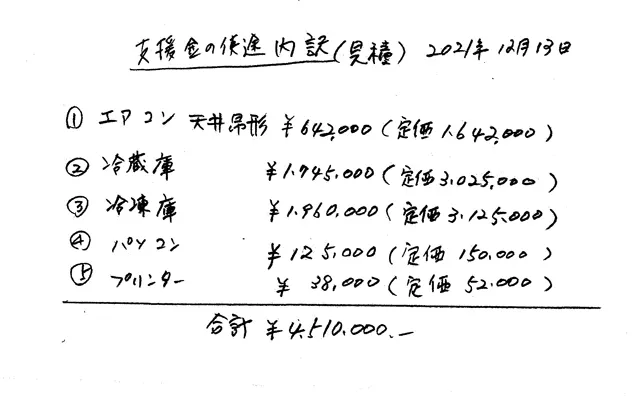 支援金の使途内訳(見積) 2021年12月13日
① エアコン 天井吊形 ¥642,000(定価1.642,000)
② 冷蔵庫 ¥1.745.000(定価3.025,000)
③ 冷凍庫 ¥1.960,000(定価3.125,000)
④ パソコン ¥125,000(定価 150,000)
⑤ プリンター ¥ 38,000(定価 52.000)
合計 ¥4,510.000.—